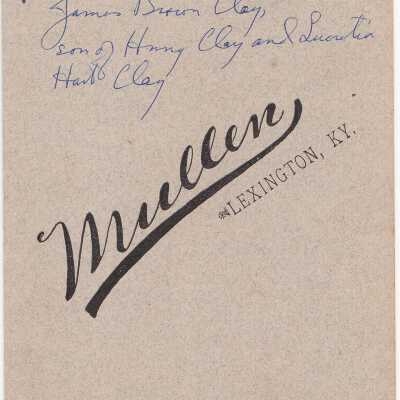 James Brown Clay,
son of Henry Clay and Lucretia
Hart Clay
Mullen
LEXINGTON, KY.